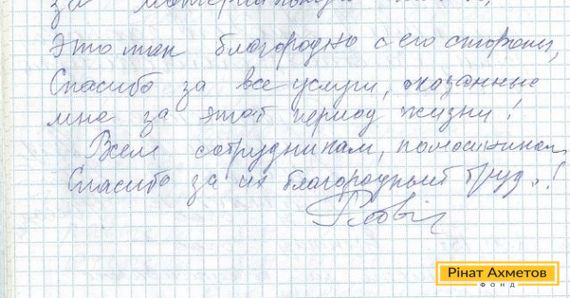 за материальную
Это так благородно с его стороны,
Спасибо за все услуги, оказанные
мне за этот период жизни!
Всем сотрудникам, помощникам
Спасибо за их благородный труд!
Рінат Ахметов
ФОНД